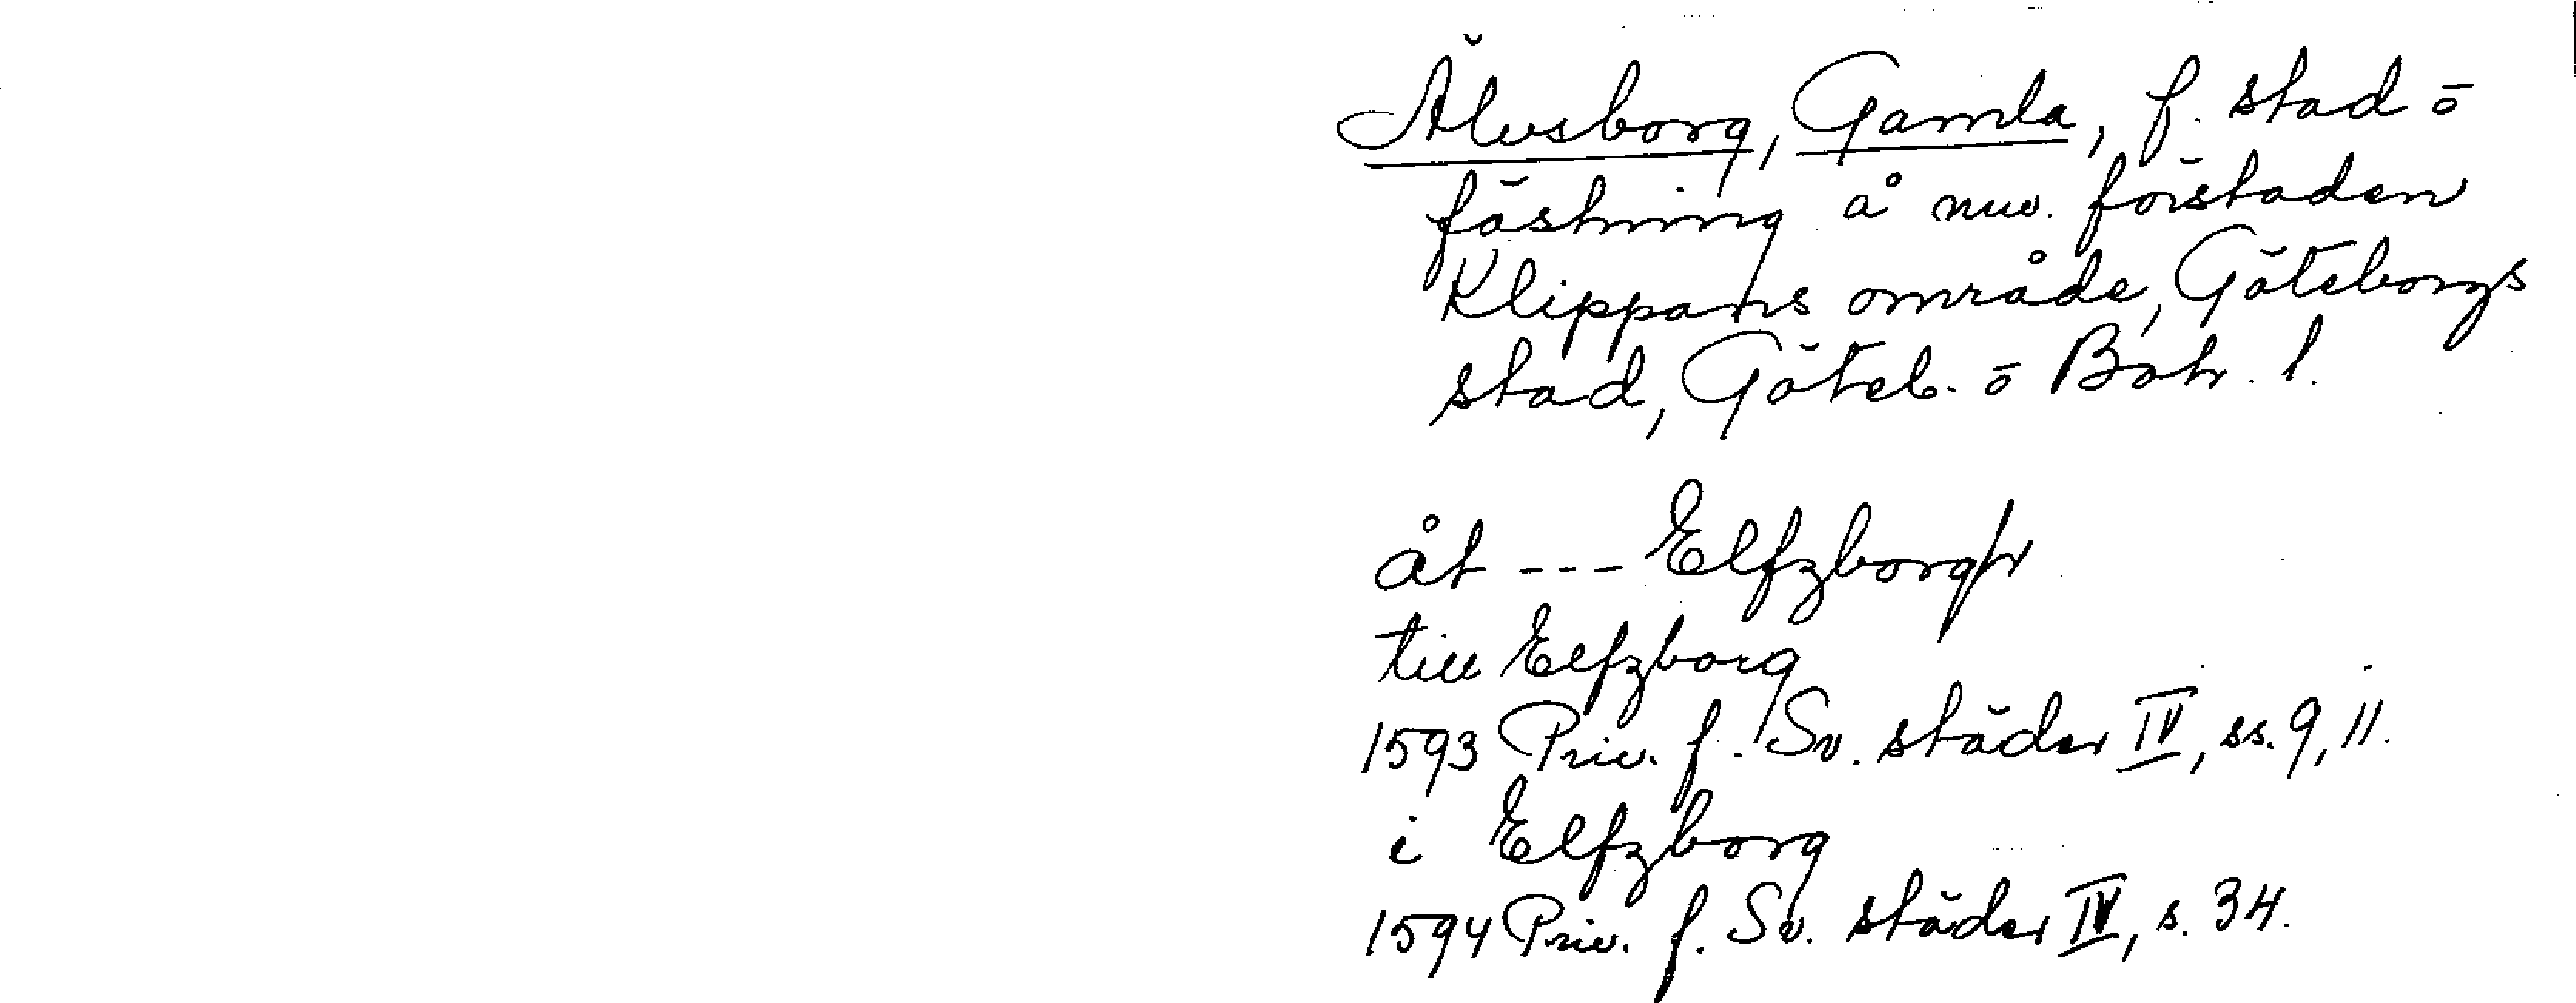 Älvsborg, Gamla, f. stad o
fästning å nuv. förstaden
Klippans område, Göteborgs
stad, Göteb. o Boh. l.
åt --- Elfzborgh
till Elfzborg
1593 Priv. f. Sv. städer IV, ss. 9, 11.
i Elfzborg
1594 Priv. f. Sv. städer IV, s. 34.